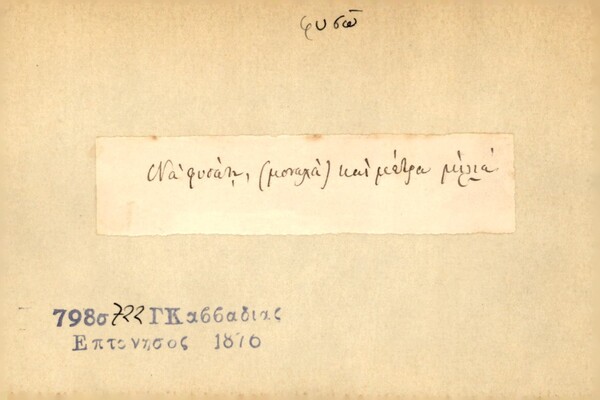 φυσῶ
Νὰ φυσάῃ, (μοναχὰ) καὶ μέτρα μίλιά
798σ722 ΓΚαββαδιας
Επτονησος 1876